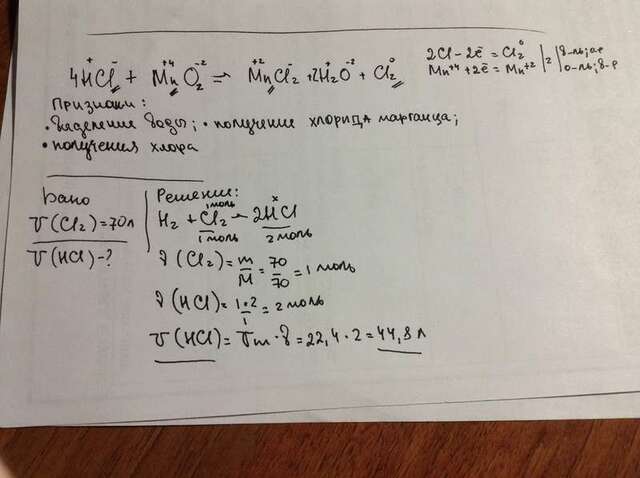 4HCl + MnO₂ = MnCl₂ + 2H₂O + Cl₂
+ - +4 -2 +2 - + -2 0
2Cl - 2ē = Cl₂⁰ | |
Mn⁺⁴ + 2ē = Mn⁺² | 2 |
Признаки:
• выделение воды; • получение хлорида марганца;
• получения хлора
Дано
V(Cl₂) = 70л
V(HCl) - ?
Решение:
1 моль x
H₂ + Cl₂ - 2HCl
1 моль 2 моль
ν(Cl₂) = m/M = 70/70 = 1 моль
ν(HCl) = 1·2/1 = 2 моль
V(HCl) = Vm · ν = 22,4 · 2 = 44,8 л